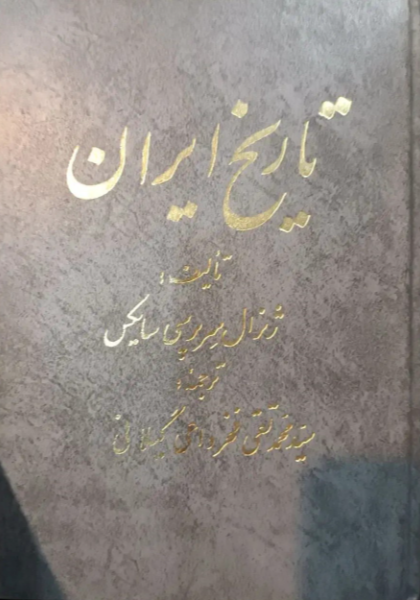 تاریخ ایران
تألیف:
ژنرال سرپرسی سایکس
ترجمه:
سید محمد تقی فخر داعی گیلانی